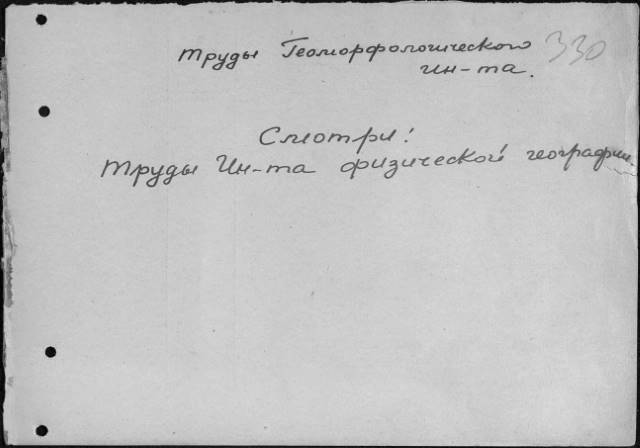 Труды Геоморфологического 330
Ин-та.
Смотри!
Труды Ин-та физической географии.